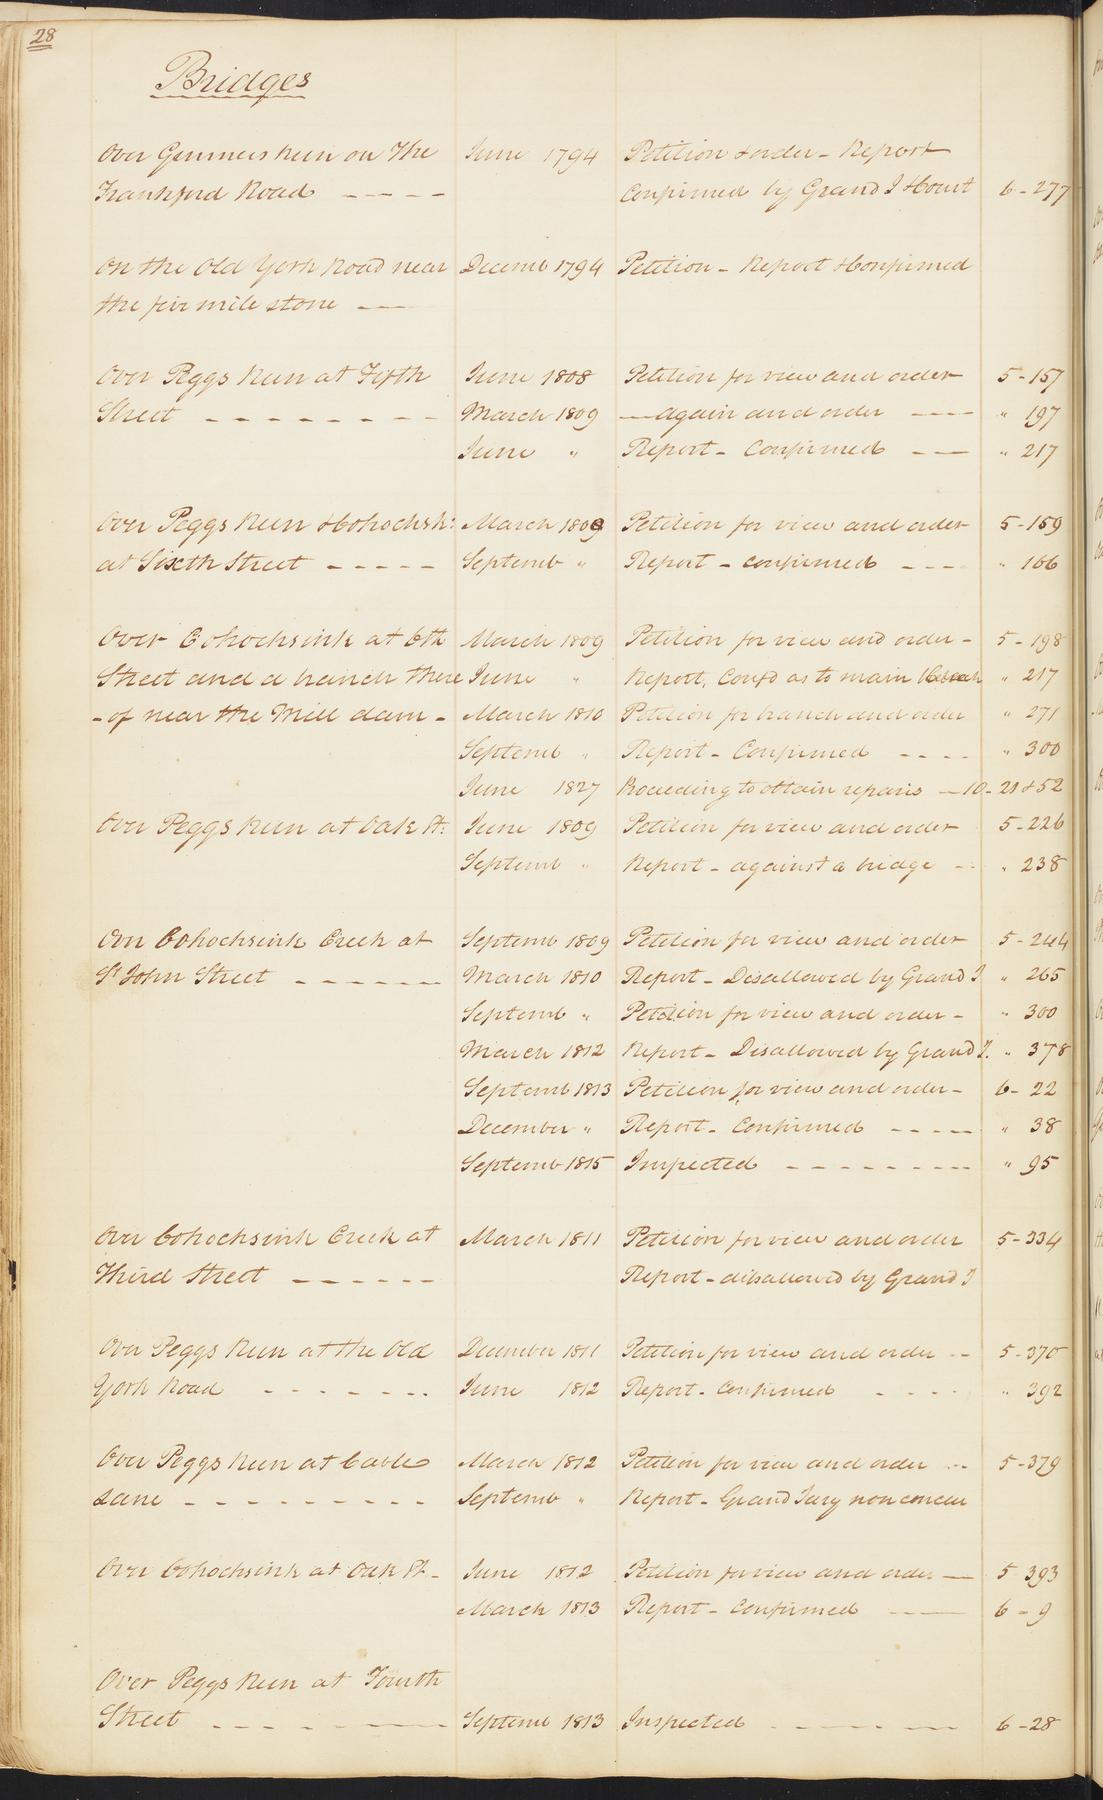 28
Bridges
Over Gunners Run on the June 1794 Petition & order - Report
Frankford Road - - - - Confirmed by Grand J & Court 6-277
On the Old York Road near Decemb 1794 Petition - Report & Confirmed
the five mile stone - -
Over Peggs Run at Fifth June 1808 Petition for view and order 5-157
Street - - - - - - - - March 1809 - again and order - - - " 197
June " Report - Confirmed - - " 217
Over Peggs Run & Cohocksk: March 1809 Petition for view and order 5-159
at Sixth Street - - - - - Septemb " Report - confirmed - - - " 166
Over Cohocksink at 6th March 1809 Petition for view and order - 5-198
Street and a branch there June " Report, Confd as to main " 217
- of near the Mill dam - March 1810 Petition for branch and order " 271
Septemb " Report - Confirmed - - - - " 300
June 1827 Proceeding to obtain repairs - 10-21 & 52
Over Peggs Run at Oak St: June 1809 Petition for view and order 5-226
Septemb " Report - against a bridge - " 238
Over Cohocksink Creek at Septemb 1809 Petition for view and order 5-244
St John Street - - - - - - March 1810 Report - Disallowed by Grand J " 265
Septemb " Petition for view and order - " 300
March 1812 Report - Disallowed by Grand J. " 378
Septemb 1813 Petition for view and order - 6-22
December " Report - Confirmed - - - - - " 38
Septemb 1815 Inspected - - - - - - - - " 95
Over Cohocksink Creek at March 1811 Petition for view and order 5-334
Third Street - - - - - - Report - disallowed by Grand J
Over Peggs Run at the Old December 1811 Petition for view and order - - 5-370
York Road - - - - - - June 1812 Report - Confirmed - - - - " 392
Over Peggs Run at Cable March 1812 Petition for view and order - - 5-379
Lane - - - - - - - - - Septemb " Report - Grand Jury non concur
Over Cohocksink at Oak St - June 1812 Petition for view and order - 5 393
March 1813 Report - Confirmed - - - 6 - 9
Over Peggs Run at Fourth
Street - - - - - - Septemb 1813 Inspected - - - - - - 6-28